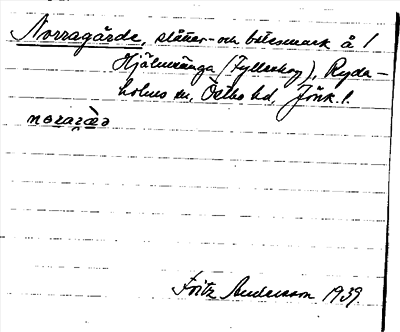 Norragärde, slåtter- och betesmark å /
Hjälmsänga (Fylleskog), Ryda-
holms sn, Östbo hd, Jönk. l.
norazæ̀ɹə
Fritz Andersson 1939